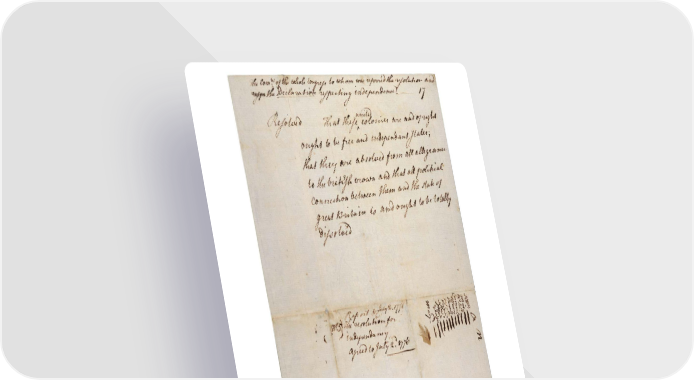 the Com.ee of the whole Congress to whom was referred the resolution and
upon the Declaration respecting independence.
17
Resolved That these united colonies are and of right
ought to be free and independant states;
that they are absolved from all allegiance
to the british crown and that all political
connection between them and the state of
great Britain is and ought to be totally
dissolved
Report
the resolution for
independancy
agreed to July 2. 1776